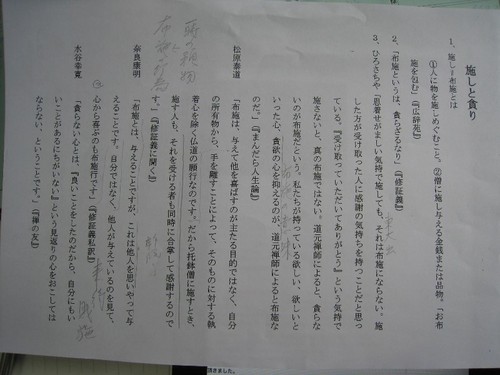 施しと貪り
1、施し=布施とは
①人に物を施しめぐむこと。②僧に施し与える金銭または品物。「お布
施を包む」(『広辞苑』)
2、「布施というは、貪らざるなり」(『修証義』)
3、ひろさちや「恩着せがましい気持で施しても、それは布施にならない。施
した方が受け取った人に感謝の気持ちを持つことだと思っ
ている。『受け取っていただいてありがとう』という気持で
施さないと、真の布施ではない。道元禅師によると、貪らな
いのが布施だという。私たちが持っている欲しい、欲しいと
いった心、貪欲の心を抑えるのが、道元禅師によると布施な
のだ。」(『まんだら人生論』)
松原泰道
「布施は、与えて他を喜ばすのが主たる目的ではなく、自分
の所有物から、手を離すことによって、そのものに対する執
着心を除く仏道の願行なのです。だから托鉢僧に施すとき、
施す人も、それを受ける者も同時に合掌して感謝するので
す。」(『修証義に聞く』)
奈良康明
「布施とは、与えることですが、これは他人を思いやって与
えることです。自分ではなく、他人が与えているのを見て、
心から喜ぶのも布施行です」(『修証義私訳』)
水谷幸寛
「貪らない心とは、『良いことをしたのだから、自分にもい
いことがあるにちがいない』という見返りの心をおこしては
ならない、ということです。」(『禅の友』)
頂きました。